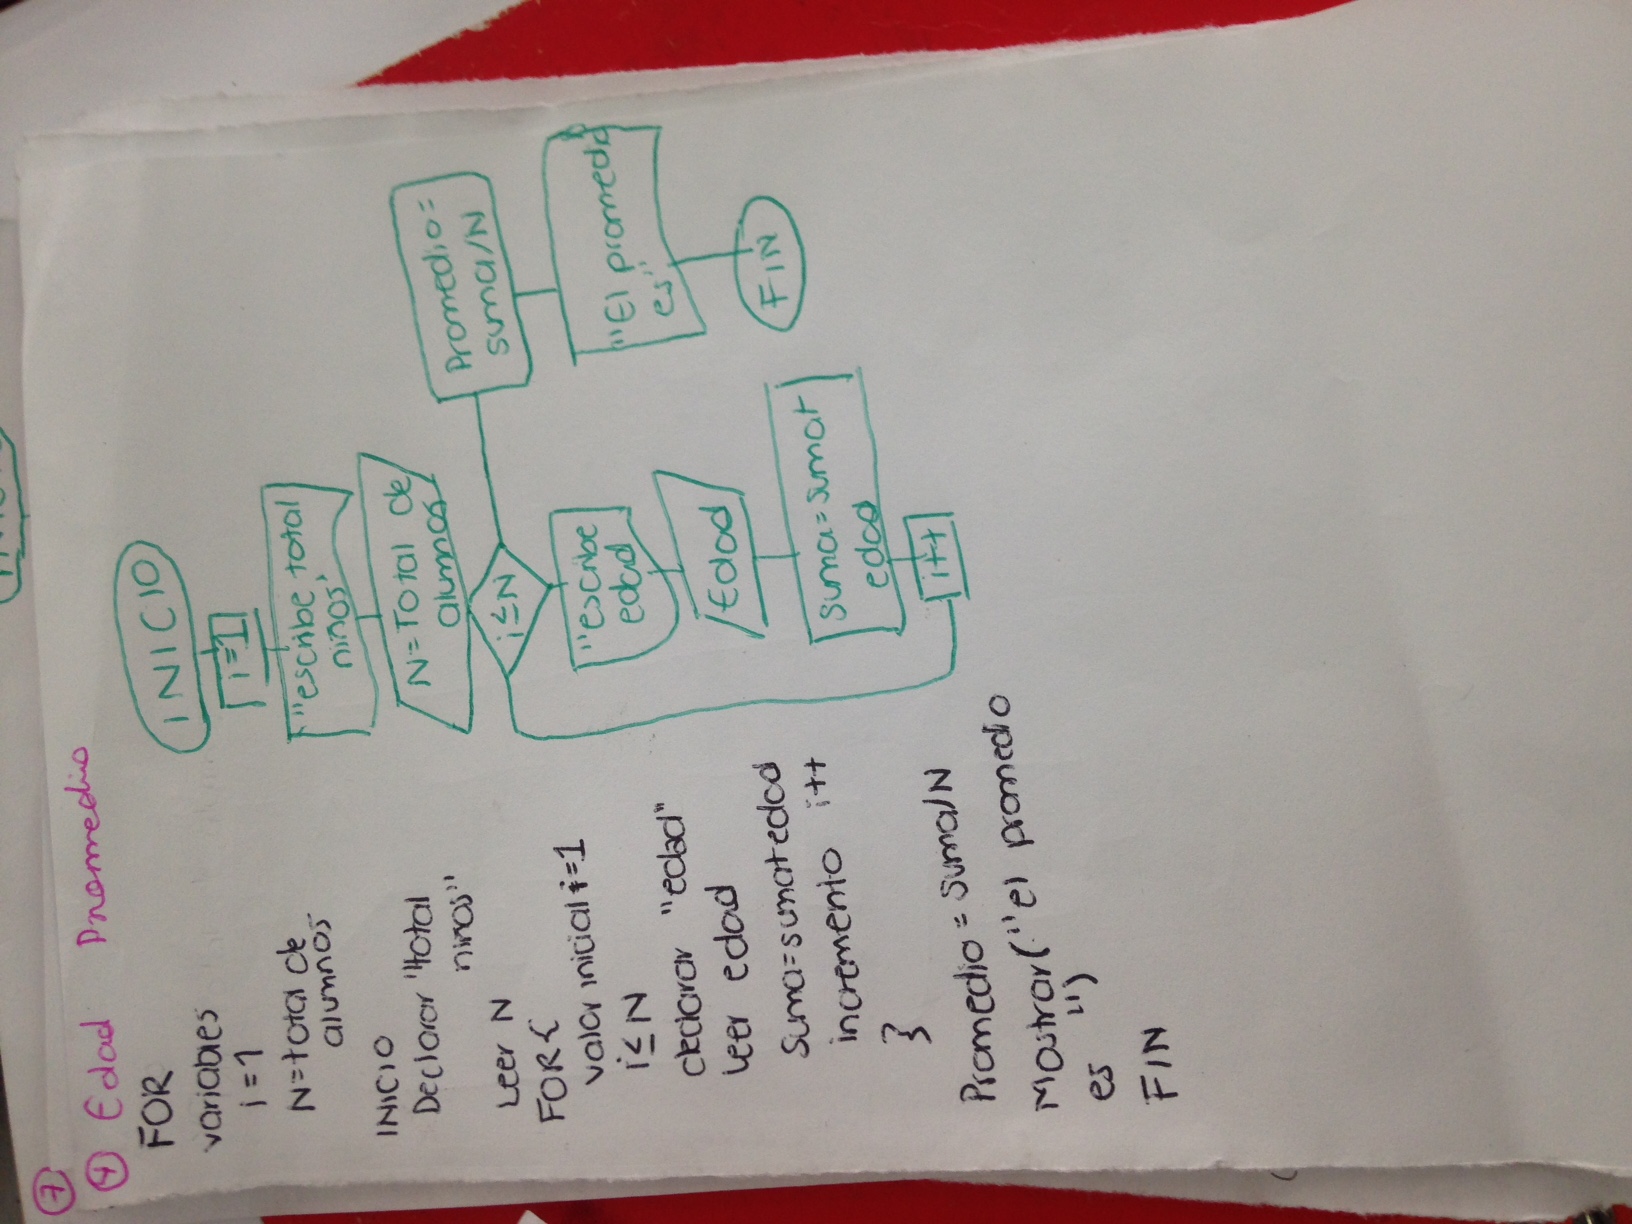 7
4 Edad Promedio
FOR
variables
i=1
N=total de
alumnos
INICIO
Declarar "total
niños"
Leer N
FOR{
valor inicial i=1
i≤N
declarar "edad"
leer edad
suma=suma+edad
incremento i++
}
Promedio = suma/N
Mostrar("el promedio
es ")
FIN
INICIO
i=1
"escribe total
niños"
N=Total de
alumnos
i≤N
"escribe
edad
Edad
suma=suma+
edad
i++
Promedio=
suma/N
"El promedio
es"
FIN